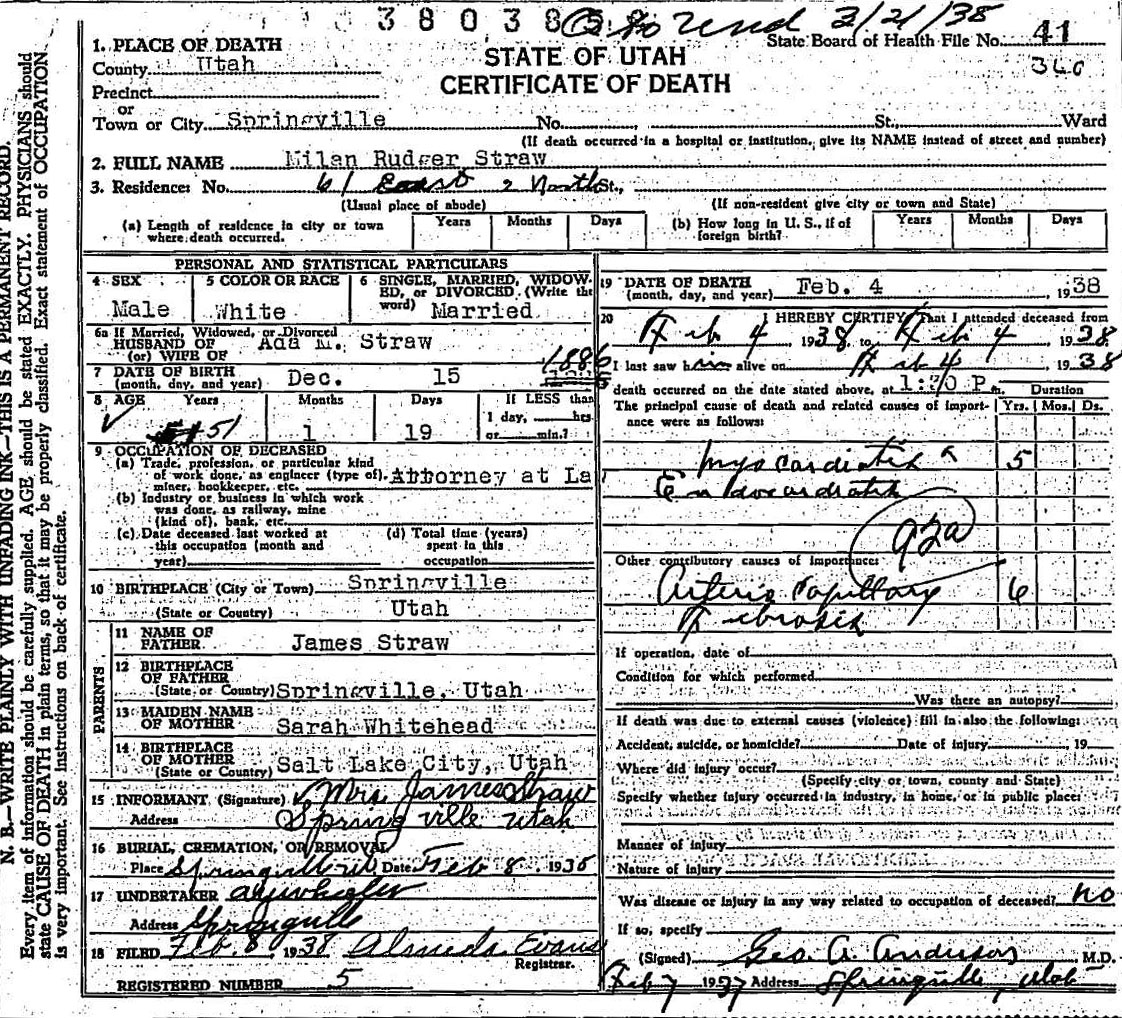 3/21/38
State Board of Health File No. 41
360
STATE OF UTAH
CERTIFICATE OF DEATH
1. PLACE OF DEATH
County Utah
Precinct
or
Town or City Springville No. , St., Ward
(If death occurred in a hospital or institution, give its NAME instead of street and number)
2. FULL NAME Milan Rudger Straw
3. Residence: No. 61 East 2 North St.,
(Usual place of abode) (If non-resident give city or town and State)
(a) Length of residence in city or town where death occurred. Years Months Days (b) How long in U. S., if of foreign birth? Years Months Days
PERSONAL AND STATISTICAL PARTICULARS
4 SEX 5 COLOR OR RACE 6 SINGLE, MARRIED, WIDOWED, or DIVORCED (Write the word)
Male White Married
6a If Married, Widowed, or Divorced
HUSBAND OF Ada M. Straw
(or) WIFE OF
7 DATE OF BIRTH (month, day, and year) Dec. 15 1886
8 AGE Years Months Days If LESS than
51 1 19 1 day, hrs
or min.?
9 OCCUPATION OF DECEASED
(a) Trade, profession, or particular kind of work done, as engineer (type of), miner, bookkeeper, etc. Attorney at La
(b) Industry or business in which work was done, as railway, mine (kind of), bank, etc.
(c) Date deceased last worked at this occupation (month and year) (d) Total time (years) spent in this occupation
10 BIRTHPLACE (City or Town) Springville
(State or Country) Utah
PARENTS
11 NAME OF FATHER James Straw
12 BIRTHPLACE OF FATHER (State or Country) Springville, Utah
13 MAIDEN NAME OF MOTHER Sarah Whitehead
14 BIRTHPLACE OF MOTHER (State or Country) Salt Lake City, Utah
15 INFORMANT (Signature) Mrs. James Straw
Address Springville Utah
16 BURIAL, CREMATION, OR REMOVAL
Place Springville Date Feb 8, 1938
17 UNDERTAKER
Address Springville
18 FILED Feb. 8 1938 Almeda Evans
Registrar.
REGISTERED NUMBER 5
19 DATE OF DEATH (month, day, and year) Feb. 4, 1938
20 I HEREBY CERTIFY, That I attended deceased from
Feb 4 1938, to Feb 4 1938
I last saw him alive on Feb 4, 1938
death occurred on the date stated above, at 1:30 P.m. Duration
The principal cause of death and related causes of importance were as follows: Yrs. Mos. Ds.
Myocarditis 5
Endocarditis
92a
Other contributory causes of importance:
Arterio Capillary 6
Fibrosis
If operation, date of
Condition for which performed
Was there an autopsy?
If death was due to external causes (violence) fill in also the following:
Accident, suicide, or homicide? Date of injury 19
Where did injury occur?
(Specify city or town, county and State)
Specify whether injury occurred in industry, in home, or in public place:
Manner of injury
Nature of injury
Was disease or injury in any way related to occupation of deceased? no
If so, specify
(Signed) Geo. A. Anderson M.D.
Feb 7 1937 Address Springville, Utah
N. B.—WRITE PLAINLY WITH UNFADING INK—THIS IS A PERMANENT RECORD.
Every item of information should be carefully supplied. AGE should be stated EXACTLY. PHYSICIANS should
state CAUSE OF DEATH in plain terms, so that it may be properly classified. Exact statement of OCCUPATION
is very important. See instructions on back of certificate.